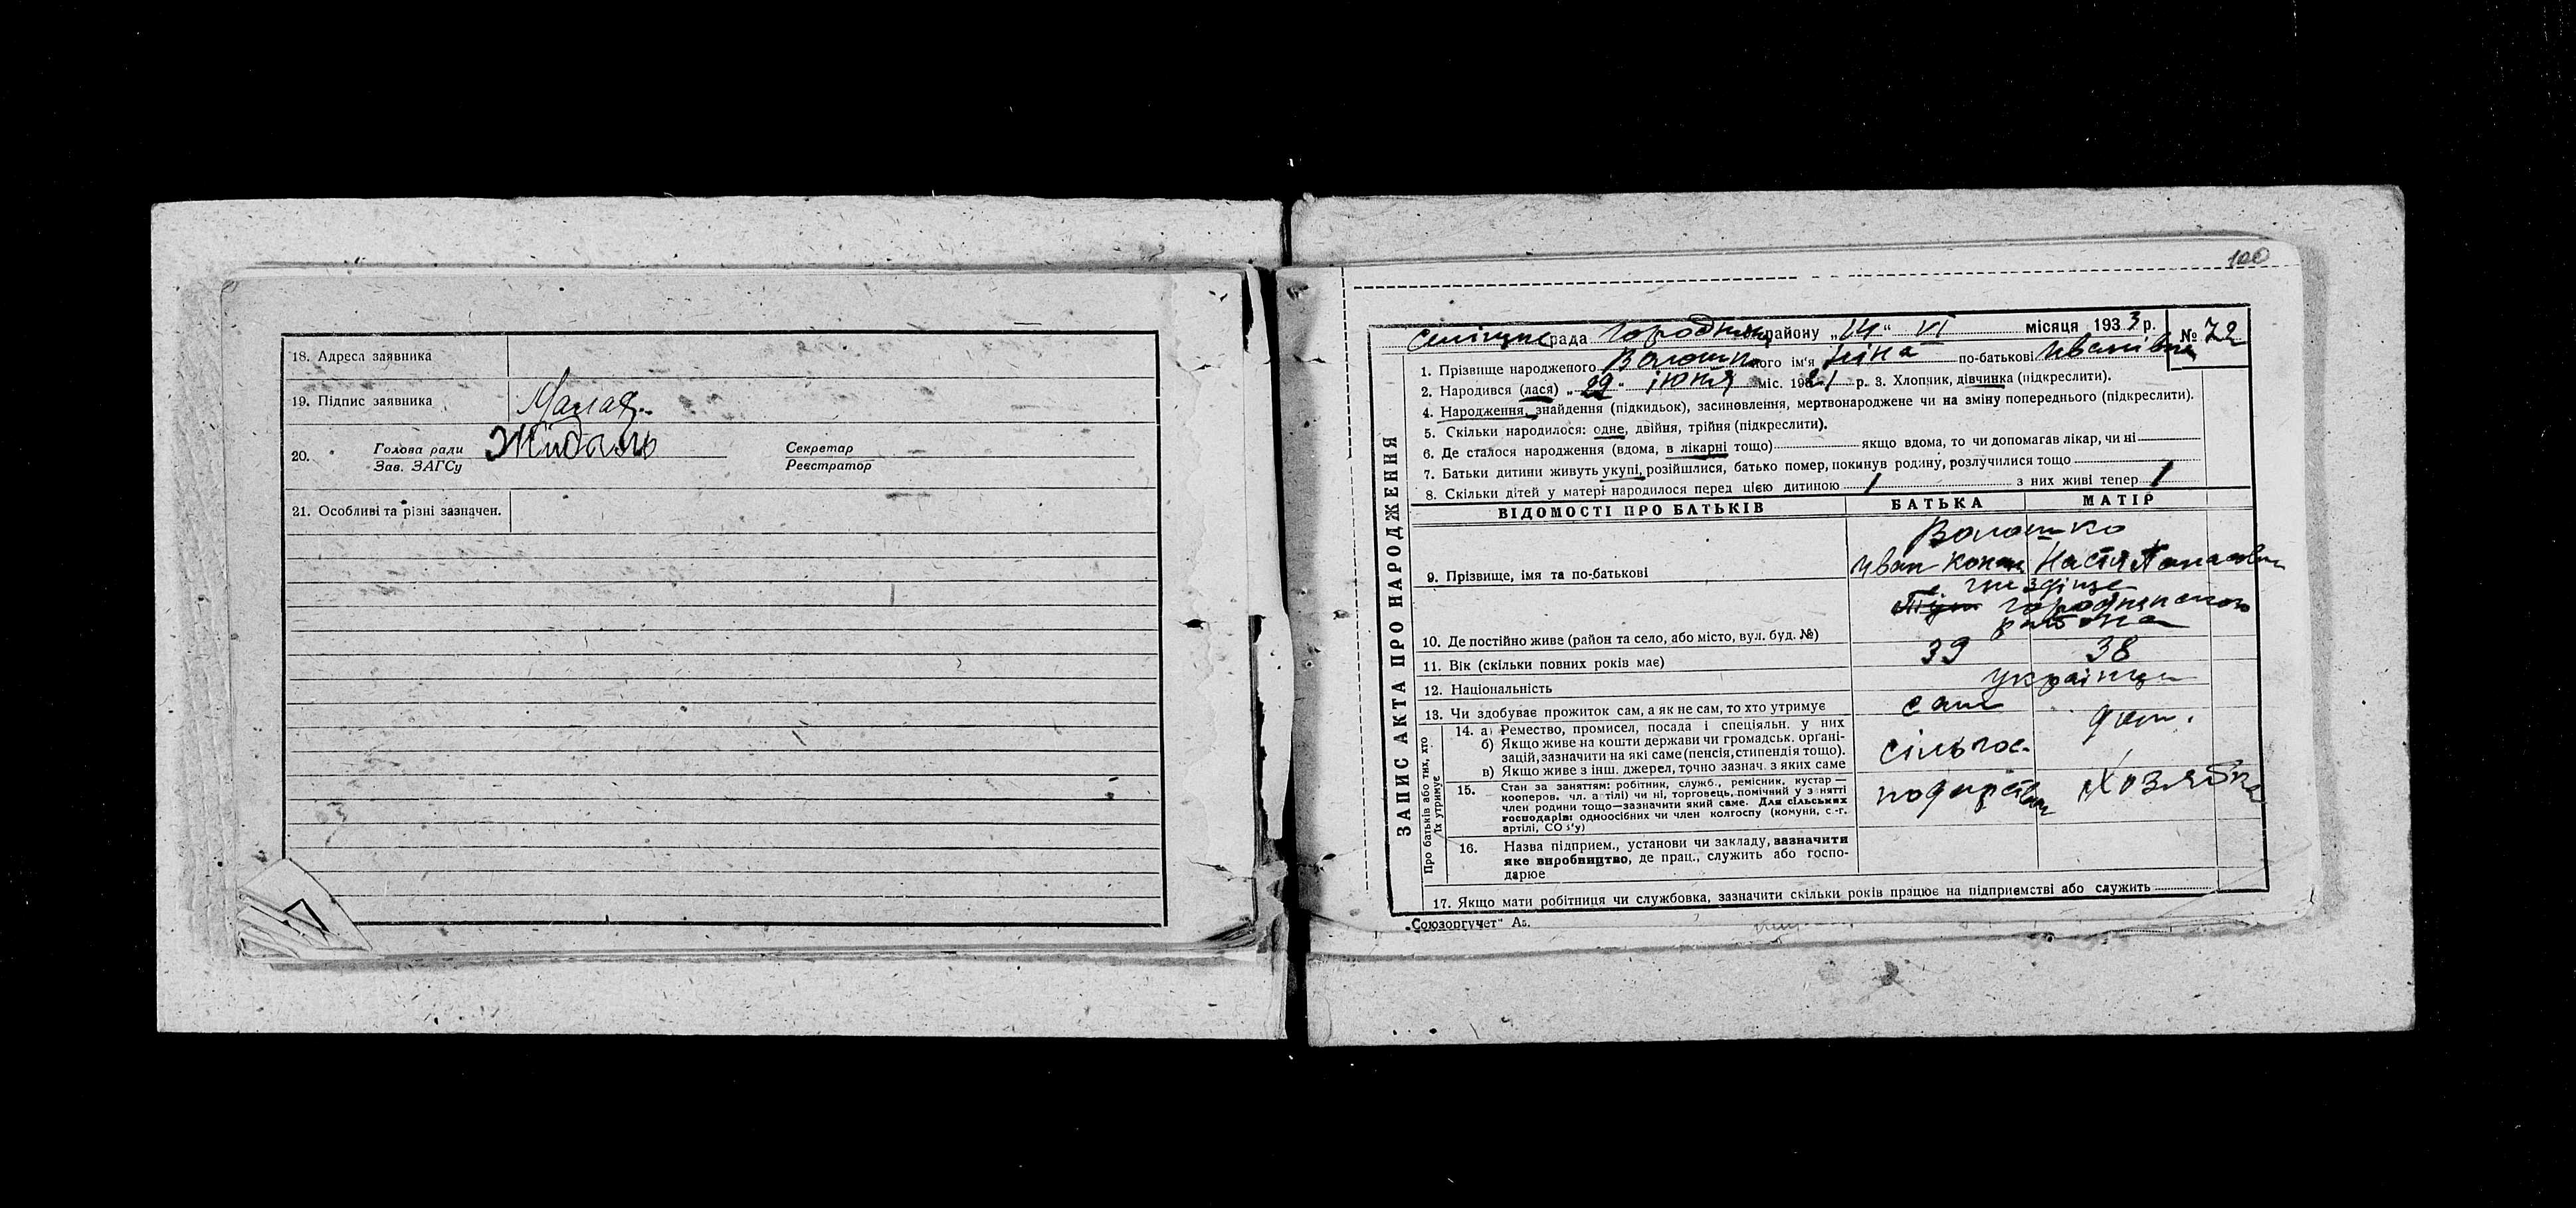 18. Адреса заявника
19. Підпис заявника
20. Голова ради
Зав. ЗАГСу
Секретар
Реєстратор
21. Особливі та різні зазначен.
100
ЗАПИС АКТА ПРО НАРОДЖЕННЯ
рада району „14“ VI місяця 1933 р. № 72
1. Прізвище народженого Волошко його ім'я Ніна по-батькові Иванівна
2. Народився (лася) „29“ июня міс. 19 р. 3. Хлопчик, дівчинка (підкреслити).
4. Народження, знайдення (підкидьок), засиновлення, мертвонароджене чи на зміну попереднього (підкреслити).
5. Скільки народилося: одне, двійня, трійня (підкреслити).
6. Де сталося народження (вдома, в лікарні тощо) якщо вдома, то чи допомагав лікар, чи ні
7. Батьки дитини живуть укупі, розійшлися, батько помер, покинув родину, розлучилися тощо
8. Скільки дітей у матері народилося перед цією дитиною 1 з них живі тепер 1
ВІДОМОСТІ ПРО БАТЬКІВ БАТЬКА МАТІР
Волошко
9. Прізвище, імя та по-батькові Иван Настя
10. Де постійно живе (район та село, або місто, вул. буд. №)
11. Вік (скільки повних років має) 39 38
12. Національність українци
13. Чи здобуває прожиток сам, а як не сам, то хто утримує сам
Про батьків або тих, хто їх утримує
14. а) Ремество, промисел, посада і спеціяльн. у них
б) Якщо живе на кошти держави чи громадськ. органі-
зацій, зазначити на які саме (пенсія, стипендія тощо).
в) Якщо живе з інш. джерел, точно зазнач. з яких саме
15. Стан за заняттям: робітник, служб., ремісник, кустар —
кооперов. чл. артілі) чи ні, торговець, помічний у занятті
член родини тощо—зазначити який саме. Для сільських
господарів: одноосібних чи член колгоспу (комуни, с.-г.
артілі, СОЗ'у)
16. Назва підприєм., установи чи закладу, зазначити
яке виробництво, де прац., служить або госпо-
дарює
17. Якщо мати робітниця чи службовка, зазначити скільки років працює на підприємстві або служить
„Союзоргучет“ Аз.